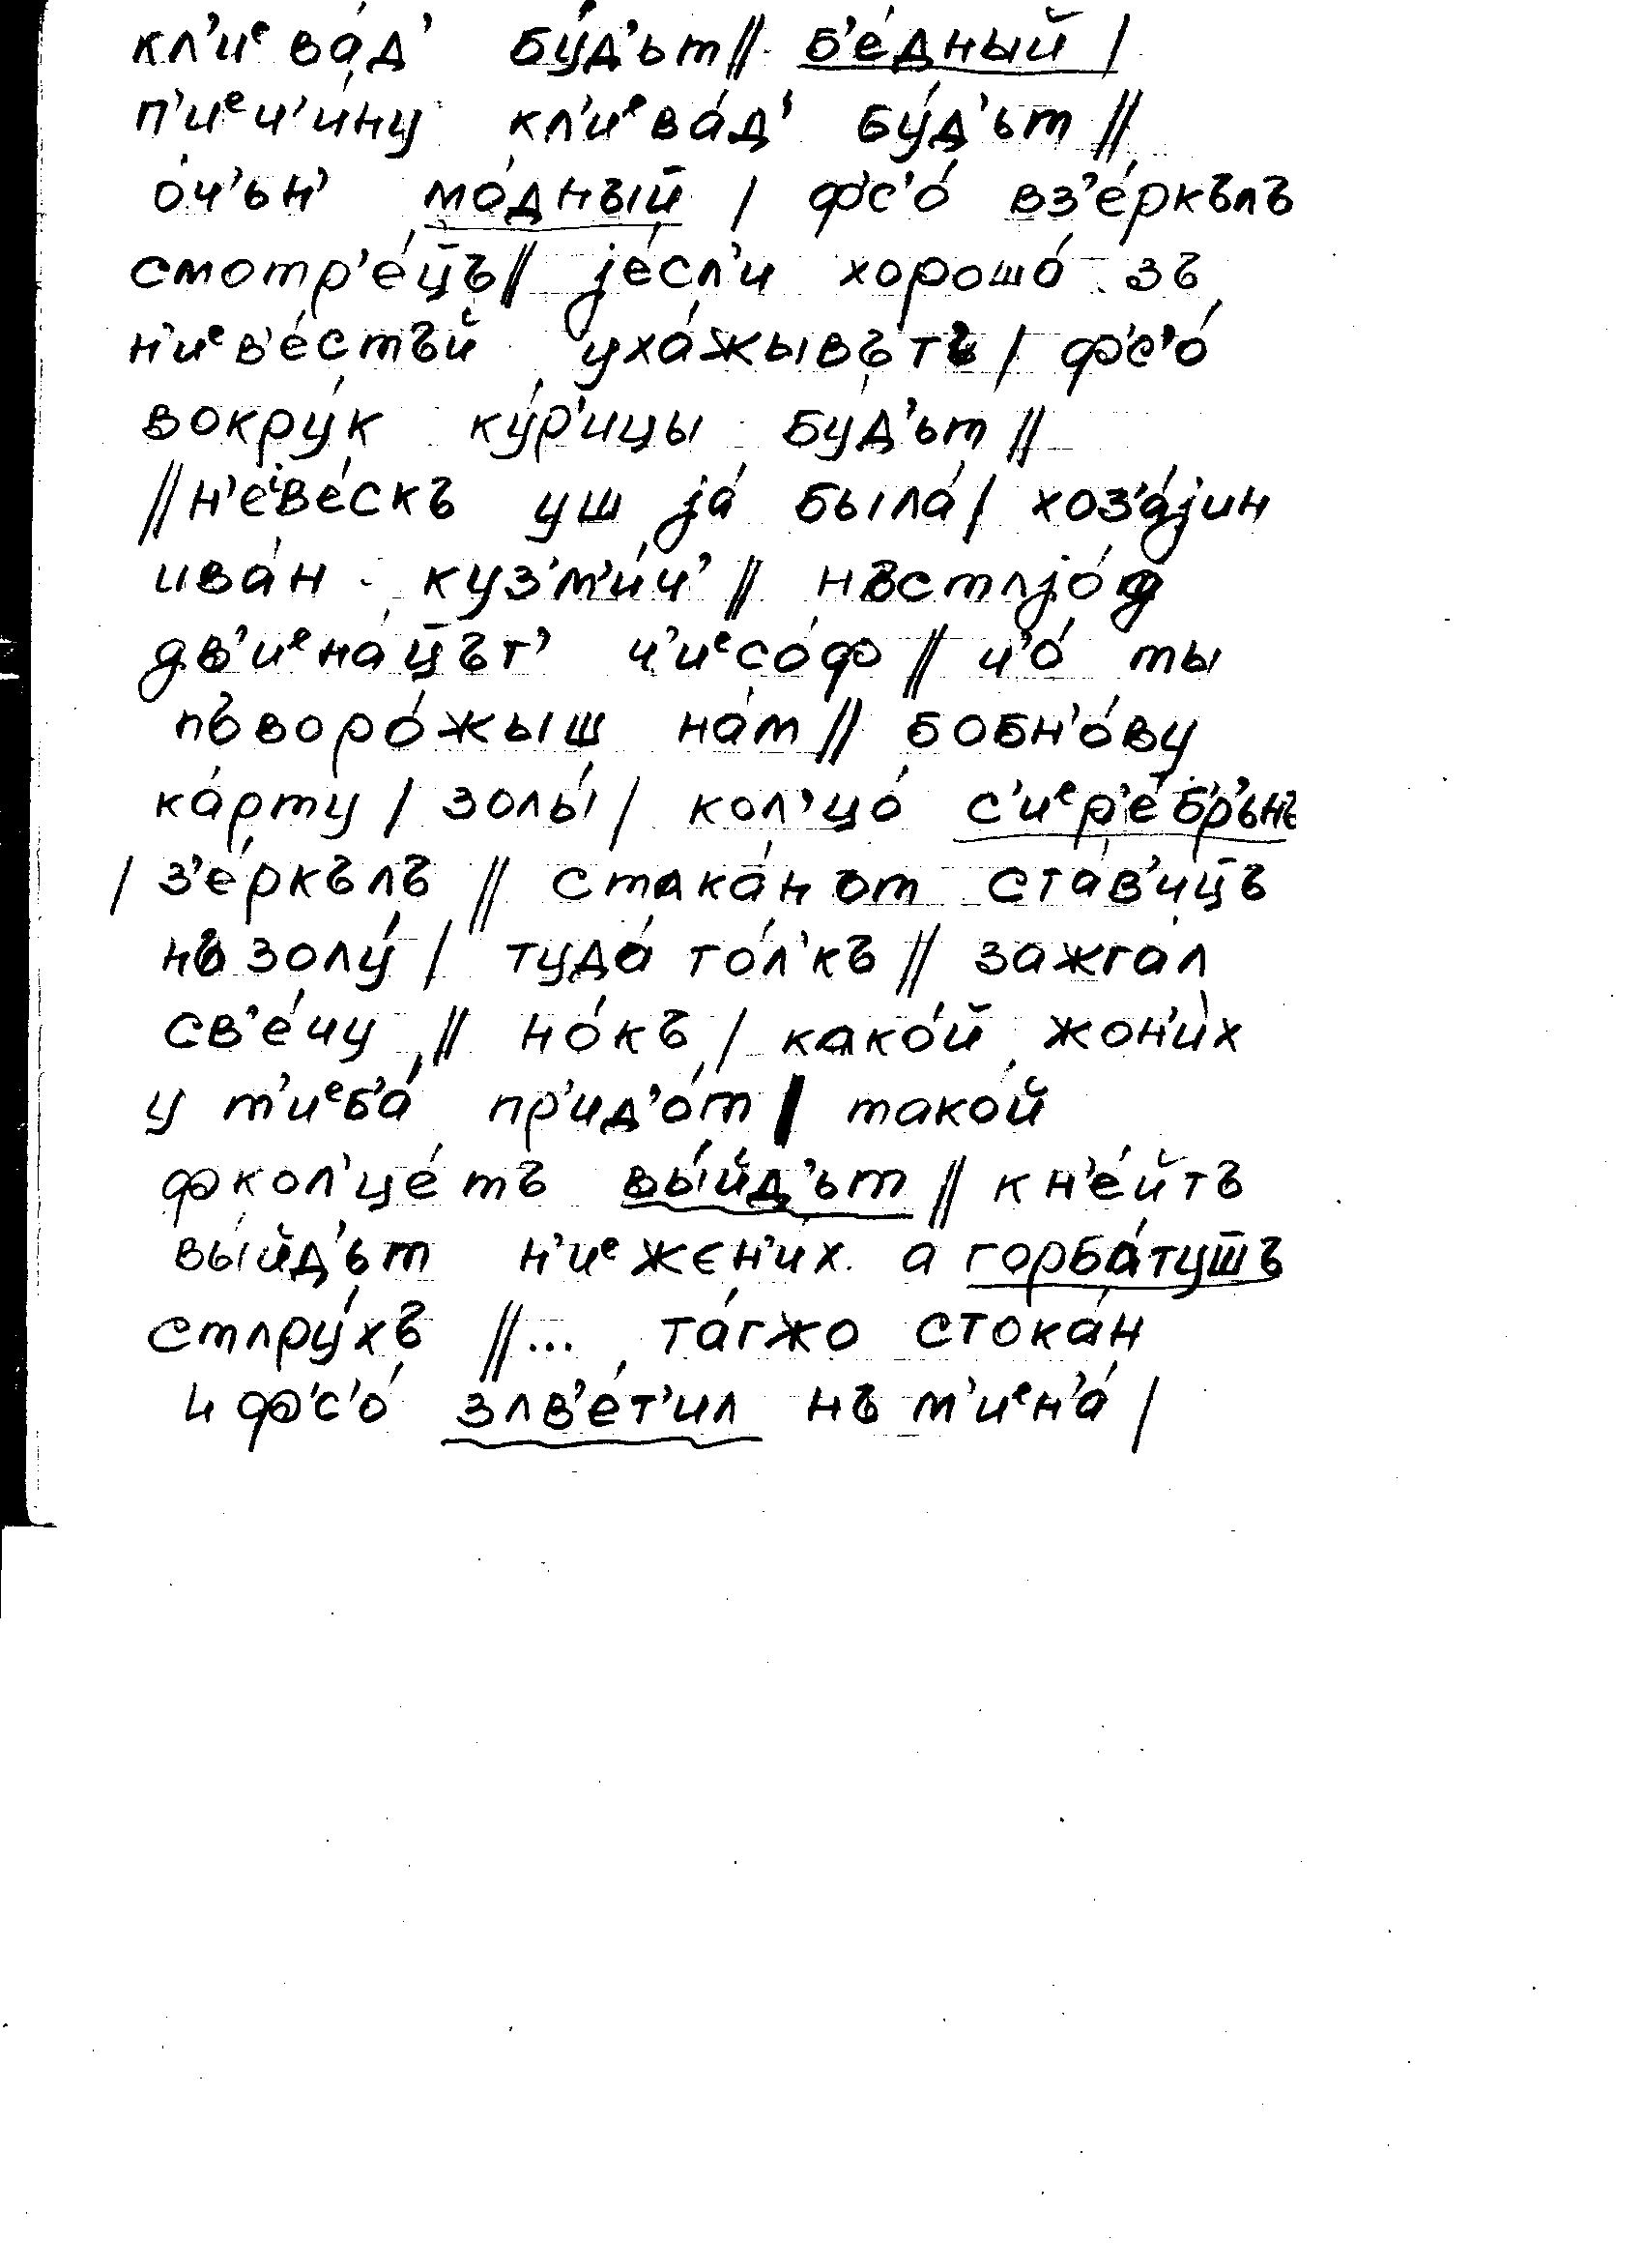 кл’иᵉва́д’ бу́д’ьт // б’е́дный /
п’иᵉч’и́ну кл’иᵉва́д’ бу́д’ьт //
о́ч’ьн’ мо́дный / ф’с’о́ вз’е́ркълъ
смотр’е́ц̄ъ // је́сл’и хорошо́ зъ
н’иᵉв’е́стъй уха́жывътъ / ф’с’о́
вокру́к ку́р’ицы бу́д’ьт //
// н’еⁱве́скъ уш ја́ была́ / хоз’а́јин
ива́н куз’м’и́ч’ // нъстʌјо́д
дв’иᵉна́ц̄ът’ ч’иᵉсо́ф // ч’о́ ты
пъворо́жыш на́м // бобн’о́ву
ка́рту / золы́ / кол’цо́ с’иᵉр’е́бр’ьнъ
/ з’е́ркълъ // стака́н от ста́в’иц̄ъ
нъ золу́ / туда́ то́л’къ // зажга́л
св’е́чу // но́къ / како́й жон’и́х
у т’иᵉб’а́ пр’ид’о́т / тако́й
фкол’це́тъ вы́йд’ьт // кн’е́йтъ
вы́йд’ьт н’иᵉ жєн’и́х а горба́туш̄ъ
стʌру́хъ // ... та́гжо стока́н
и ф’с’о́ зʌв’е́т’ил нъ м’иᵉн’а́ /